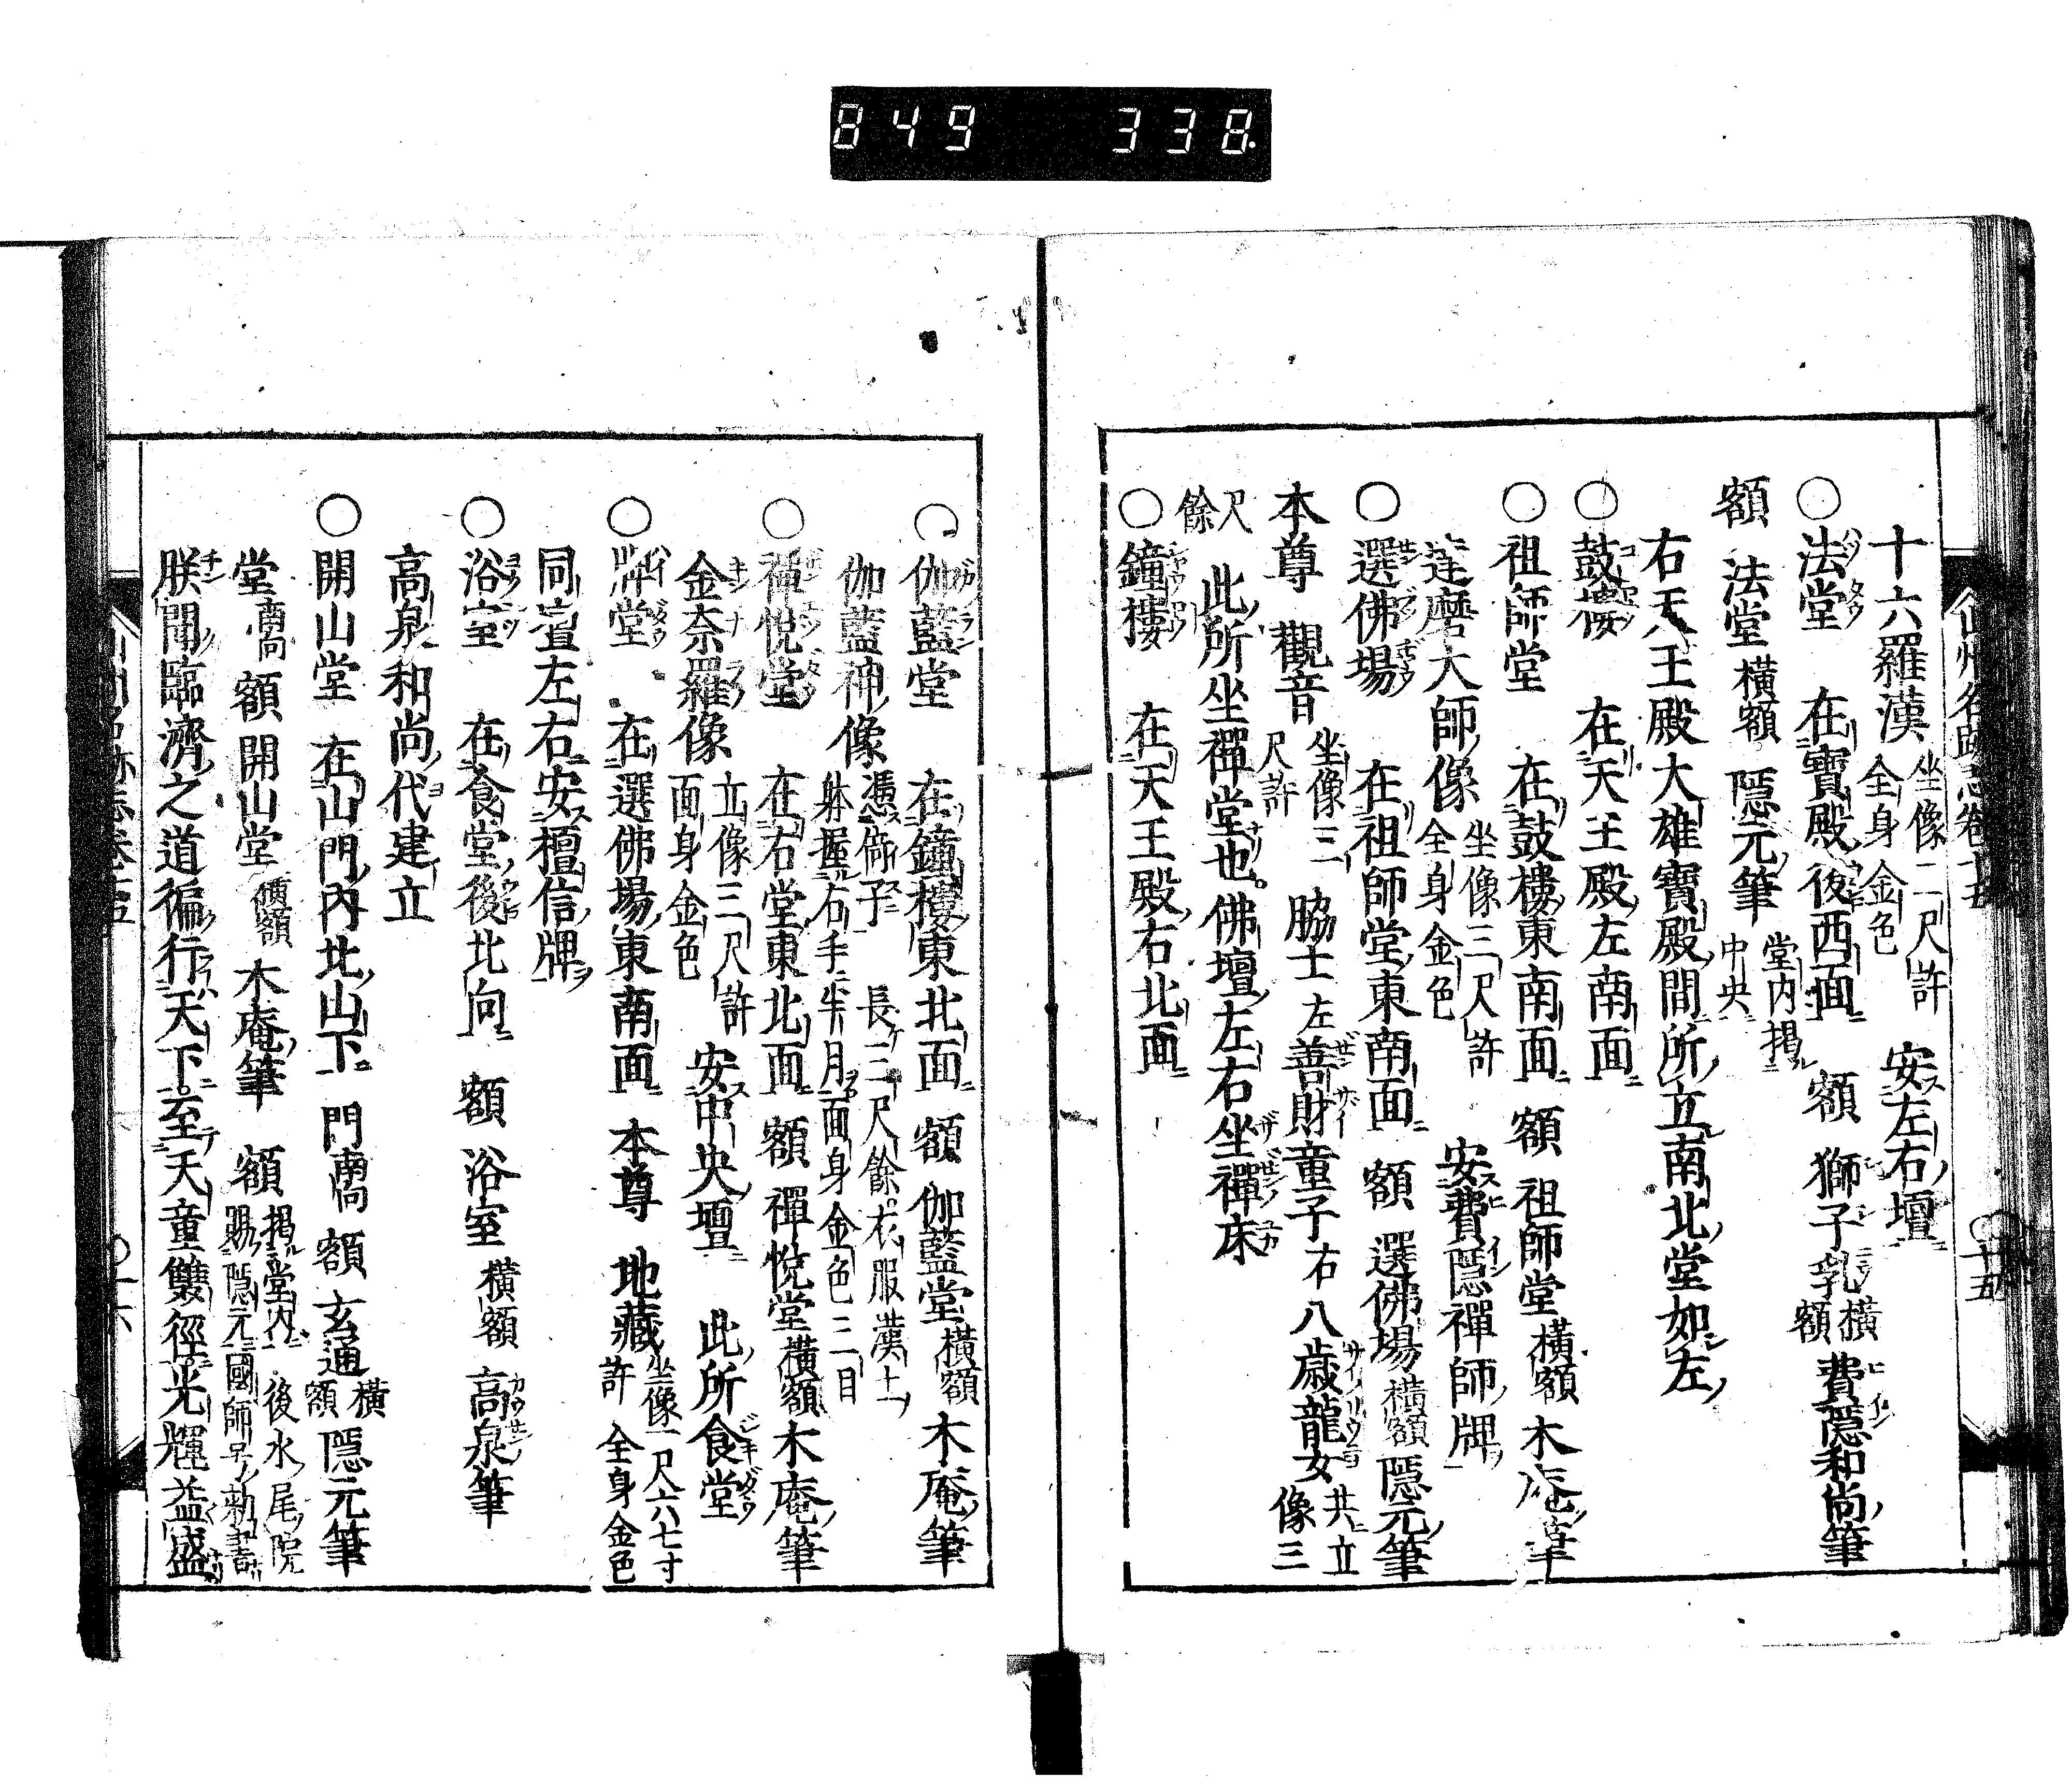 849 338
十六羅漢 坐像二尺許 全身金色 安左右壇
○法堂 在寶殿後西面 額 獅子乳 橫額 費隱和尚筆
額 法堂 橫額 隱元筆 堂内掲 中央
右天王殿大雄寶殿間所立南北堂如左
○鼓樓 在天王殿左南面
○祖師堂 在鼓樓東南面 額 祖師堂 橫額 木庵筆
達磨大師像 坐像三尺許 全身金色 安費隱禪師牌
○選佛場 在祖師堂東南面 額 選佛場 橫額 隱元筆
本尊 觀音 坐像三尺許 脇士 左善財童子 右八歳龍女 共立像三
尺餘 此所坐禪堂也佛壇左右坐禪床
○鐘樓 在天王殿右北面
山州名跡志卷十五 ○十五
○伽藍堂 在鐘樓東北面 額 伽藍堂 橫額 木庵筆
伽藍神像 憑倚子 長三尺餘衣服漢土 躰握右手半月面身金色三目
○禪悦堂 在右堂東北面 額 禪悦堂 橫額 木庵筆
金奈羅像 立像三尺許 面身金色 安中央壇 此所食堂
○牌堂 在選佛場東南面 本尊 地藏 坐像一尺六七寸許 全身金色
同壇左右安檀信牌
○浴室 在食堂後北向 額 浴室 橫額 高泉筆
高泉和尚代建立
○開山堂 在山門内北山下 門南向 額 玄通 橫額 隱元筆
堂南向 額 開山堂 橫額 木庵筆 額 掲堂内 後水尾院賜隱元國師号勅書
朕聞臨濟之道徧行天下至天童雙徑光輝益盛